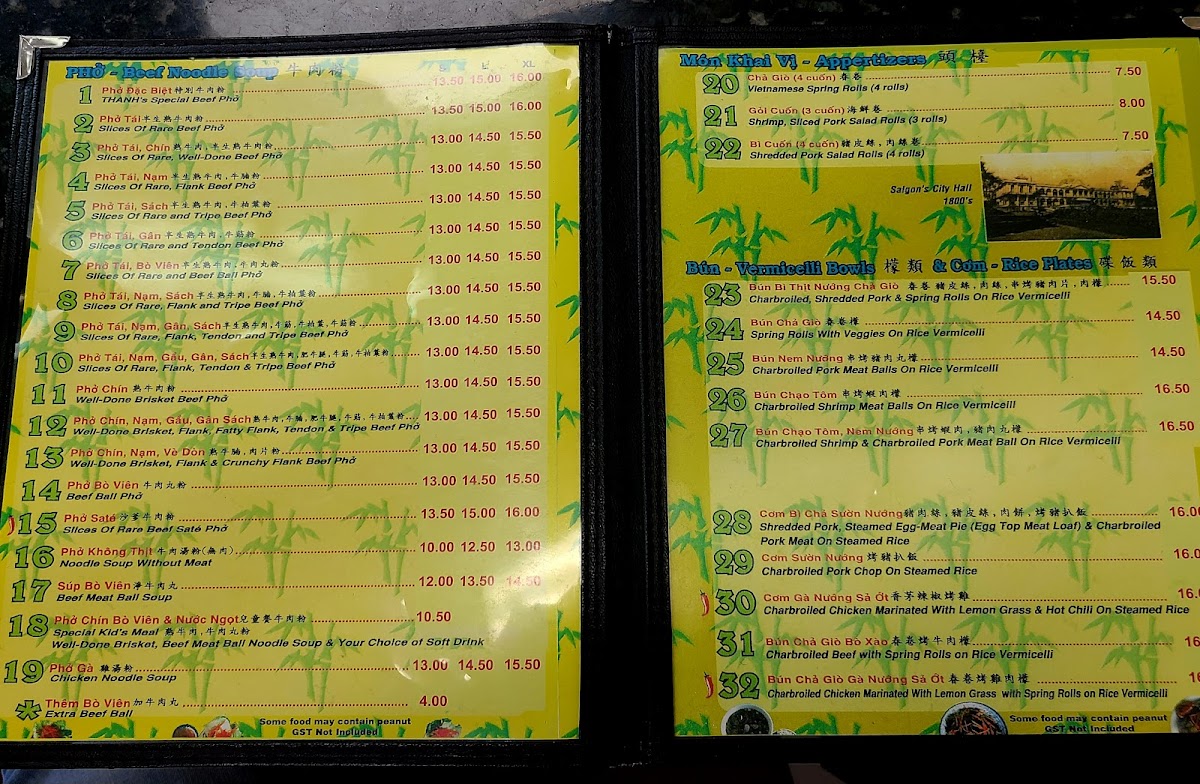 PHỞ - Beef Noodle Soup 牛肉粉
L XL
1 Phở Đặc Biệt 特別牛肉粉 13.50 15.00 16.00
THANH's Special Beef Phở
2 Phở Tái 半生熟牛肉粉 13.50 15.00 16.00
Slices Of Rare Beef Phở
3 Phở Tái, Chín 熟牛肉,半生熟牛肉粉 13.00 14.50 15.50
Slices Of Rare, Well-Done Beef Phở
4 Phở Tái, Nạm 半生熟牛肉,牛腩粉 13.00 14.50 15.50
Slices Of Rare, Flank Beef Phở
5 Phở Tái, Sách 半生熟牛肉,牛柏葉粉 13.00 14.50 15.50
Slices Of Rare and Tripe Beef Phở
6 Phở Tái, Gân 半生熟牛肉,牛筋粉 13.00 14.50 15.50
Slices Of Rare and Tendon Beef Phở
7 Phở Tái, Bò Viên 半生熟牛肉,牛肉丸粉 13.00 14.50 15.50
Slices Of Rare and Beef Ball Phở
8 Phở Tái, Nạm, Sách 半生熟牛肉,牛腩,牛柏葉粉 13.00 14.50 15.50
Slices Of Rare, Flank and Tripe Beef Phở
9 Phở Tái, Nạm, Gân, Sách 半生熟牛肉,牛筋,牛柏葉,牛筋粉 13.00 14.50 15.50
Slices Of Rare, Flank, Tendon and Tripe Beef Phở
10 Phở Tái, Nạm, Gầu, Gân, Sách 半生熟牛肉,肥牛腩,牛筋,牛柏葉粉 13.00 14.50 15.50
Slices Of Rare, Flank, Tendon & Tripe Beef Phở
11 Phở Chín 熟牛肉粉 13.00 14.50 15.50
Well-Done Brisket Beef Phở
12 Phở Chín, Nạm, Gầu, Gân Sách 熟牛肉,牛腩,肥牛腩,牛筋,牛柏葉粉 13.00 14.50 15.50
Well-Done Brisket, Flank, Fatty Flank, Tendon & Tripe Beef Phở
13 Phở Chín, Nạm, Vè Dòn 熟牛腩,肉片粉 13.00 14.50 15.50
Well-Done Brisket, Flank & Crunchy Flank Beef Phở
14 Phở Bò Viên 牛肉丸粉 13.00 14.50 15.50
Beef Ball Phở
15 Phở Saté 沙爹牛肉粉 13.50 15.00 16.00
Slices Of Rare Beef Saté Phở
16 Phở Không Thịt 牛肉湯粉(無肉) 10.00 12.50 13.00
Noodle Soup Without Meat
17 Súp Bò Viên 淨牛肉丸 12.00 13.50 14.50
Beef Meat Ball Soup
18 Phở Chín Bò Viên & Nước Ngọt 兒童餐牛肉粉 10.50
Special Kid's Meal 熟牛肉,牛肉丸粉
Well-Done Brisket, Beef Meat Ball Noodle Soup & Your Choice of Soft Drink
19 Phở Gà 雞湯粉 13.00 14.50 15.50
Chicken Noodle Soup
* Thêm Bò Viên 加牛肉丸 4.00
Extra Beef Ball
Some food may contain peanut
GST Not Included
Món Khai Vị - Appertizers 頭檯
20 Chả Giò (4 cuốn) 春卷 7.50
Vietnamese Spring Rolls (4 rolls)
21 Gỏi Cuốn (3 cuốn) 海鮮卷 8.00
Shrimp, Sliced Pork Salad Rolls (3 rolls)
22 Bì Cuốn (4 cuốn) 豬皮絲,肉絲卷 7.50
Shredded Pork Salad Rolls (4 rolls)
Saigon's City Hall
1800's
Bún - Vermicelli Bowls 檬類 & Cơm - Rice Plates 碟飯類
23 Bún Bì Thịt Nướng Chả Giò 春卷豬皮絲,肉絲,串烤豬肉片,肉檬 15.50
Charbroiled, Shredded Pork & Spring Rolls On Rice Vermicelli
24 Bún Chả Giò 春卷檬 14.50
Spring Rolls With Veggies On Rice Vermicelli
25 Bún Nem Nướng 串烤豬肉丸檬 14.50
Charbroiled Pork Meat Balls On Rice Vermicelli
26 Bún Chạo Tôm 串烤蝦肉檬 16.50
Charbroiled Shrimp Meat Balls On Rice Vermicelli
27 Bún Chạo Tôm, Nem Nướng 串烤蝦肉,豬肉丸檬 16.50
Charbroiled Shrimp & Charbroiled Pork Meat Ball On Rice Vermicelli
28 Cơm Bì Chả Sườn Nướng 豬肉絲,豬皮絲,肉餅,烤豬扒飯 16.00
Shredded Pork, Steamed Egg-Meat Pie (Egg Top Meat Loaf) & Charbroiled
Pork Meat On Steamed Rice
29 Cơm Sườn Nướng 烤豬扒飯 16.0
Charbroiled Pork Chop On Steamed Rice
30 Cơm Gà Nướng Sả Ớt 香茅辣椒烤雞 16.
Charbroiled Chicken Marinated With Lemon Grass & Hot Chili On Steamed Rice
31 Bún Chả Giò Bò Xào 春卷烤牛肉檬 16
Charbroiled Beef with Spring Rolls on Rice Vermicelli
32 Bún Chả Giò Gà Nướng Sả Ớt 春卷烤雞肉檬 16
Charbroiled Chicken Marinated With Lemon Grass with Spring Rolls on Rice Vermicelli
Some food may contain peanut
GST Not Included